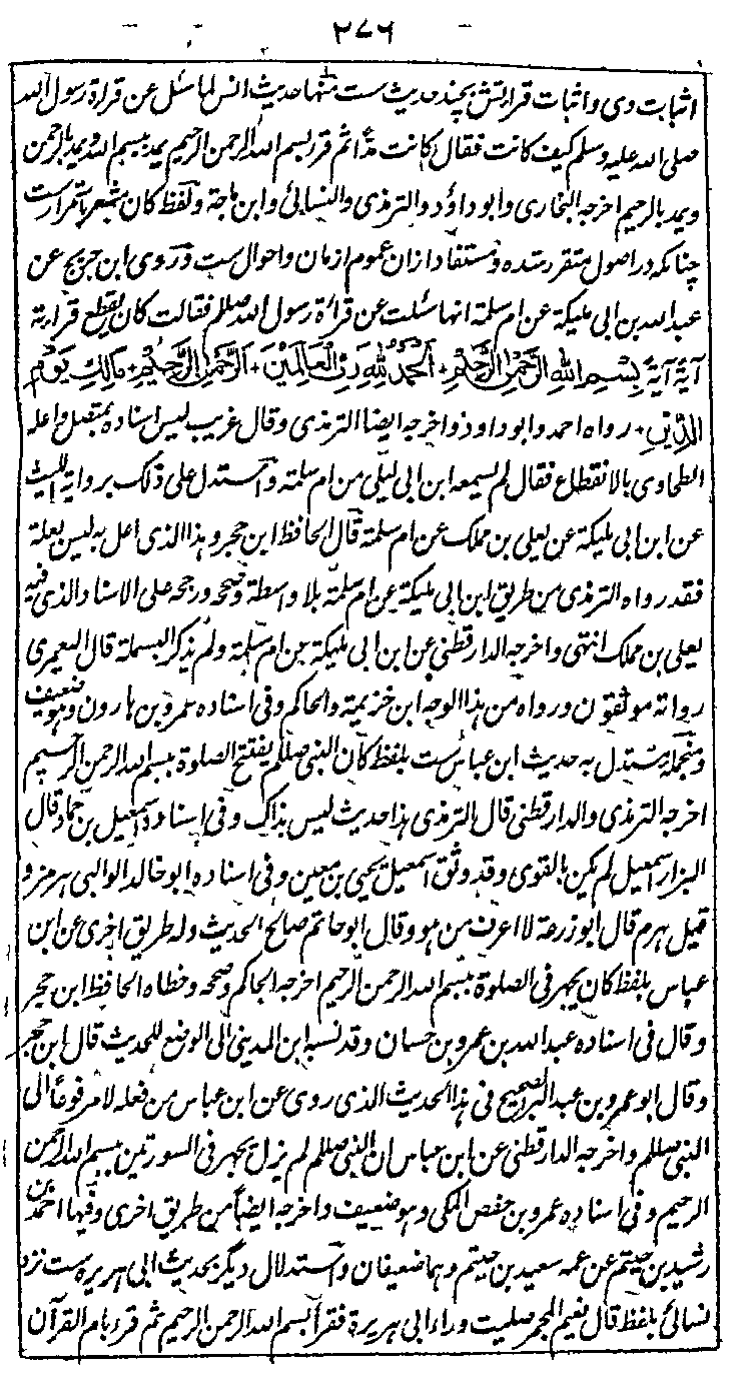 ۲۷۶
اثبات وی و اثبات قرارتش بچند حدیث ست منها حدیث انس لما سئل عن قراءة رسول الله
صلی الله علیه وسلم کیف کانت فقال کانت مدّا ثم قرأ بسم الله الرحمن الرحیم یمد ببسم الله ویمد بالرحمن
ویمد بالرحیم اخرجه البخاری وابو داؤد والترمذی والنسائی وابن ماجة ولفظ کان مشعر باستمرارست
چنانکه در اصول متقرر شده ومستفاد ازان عموم ازمان واحوال ست وروی ابن جریج عن
عبد الله بن ابی ملیکة عن ام سلمة انها سئلت عن قراءة رسول الله صللم فقالت کان یقطع قراءته
آیَةً آیَةً بِسْمِ اللهِ الرَّحْمٰنِ الرَّحِیْمِ ٭ اَلْحَمْدُ لِلّٰهِ رَبِّ الْعَالَمِیْنَ ٭ اَلرَّحْمٰنِ الرَّحِیْمِ ٭ مَالِکِ یَوْمِ
الدِّیْنِ ٭ رواه احمد وابو داود واخرجه ایضا الترمذی وقال غریب لیس اسناده بمتصل واعله
الطحاوی بالانقطاع فقال لم یسمعه ابن ابی لیلی من ام سلمة واستدل علی ذلک بروایة اللیث
عن ابن ابی ملیکة عن یعلی بن مملک عن ام سلمة قال الحافظ ابن حجر وهذا الذی اعل به لیس بعلة
فقد رواه الترمذی من طریق ابن ابی ملیکة عن ام سلمة بلا واسطة وصححه ورجحه علی الاسناد الذی فیه
یعلی بن مملک انتهی واخرجه الدارقطنی عن ابن ابی ملیکة عن ام سلمة ولم یذکر البسملة قال الیعمری
رواته موثقون ورواه من هذا الوجه ابن خزیمة والحاکم وفی اسناده عمرو بن هارون وهو ضعیف
ومنجمله مستدل به حدیث ابن عباس ست بلفظ کان النبی صللم یفتتح الصلوة ببسم الله الرحمن الرحیم
اخرجه الترمذی والدارقطنی قال الترمذی هذا حدیث لیس بذاک وفی اسناده اسمعیل بن حماد قال
البزار اسمعیل لم یکن بالقوی وقد وثق اسمعیل یحیی بن معین وفی اسناده ابو خالد الوالبی هرمز و
قیل هرم قال ابو زرعة لا اعرف من هو وقال ابو حاتم صالح الحدیث وله طریق اخری عن ابن
عباس بلفظ کان یجهر فی الصلوة ببسم الله الرحمن الرحیم اخرجه الحاکم وصححه وخطاه الحافظ ابن حجر
وقال فی اسناده عبد الله بن عمرو بن حسان وقد نسبه ابن المدینی الی الوضع للحدیث قال ابن حجر
وقال ابو عمرو بن عبد البر الصحیح فی هذا الحدیث الذی روی عن ابن عباس من فعله لا مرفوعاً الی
النبی صللم واخرجه الدارقطنی عن ابن عباس ان النبی صللم لم یزل یجهر فی السورتین ببسم الله الرحمن
الرحیم وفی اسناده عمرو بن حفص المکی وهو ضعیف واخرجه ایضاً من طریق اخری وفیها احمد بن
رشید بن خیثم عن عمه سعید بن خیثم وهما ضعیفان واستدلال دیگر بحدیث ابی هریره ست نزد
نسائی بلفظ قال نعیم المجمر صلیت وراء ابی هریرة فقرأ بسم الله الرحمن الرحیم ثم قرء بام القرآن